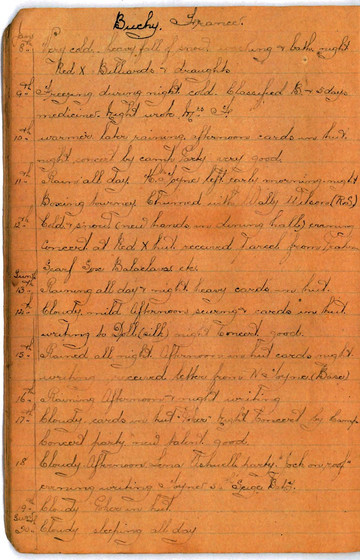 Buchy. France.
8th Very cold. heavy fall of snow washing & bath. night
Red X Billiards & draughts
9th Freezing during night cold. Classified B 2 days
medicine. Night
10th warmer later raining. afternoon cards in hut.
night concert by camp Party very good.
11th Rain all day. left early morning night
Boxing tourney Chummed with Wally Wilson
12th Cold & snow (new hands in dining halls) evening
Concert at Red X hut. received Parcel from
Scarf Sox Balaclava etc.
Sunday
13th Raining all day & night heavy. cards in hut.
14th Cloudy mild Afternoon sewing & cards in hut.
writing to Doll (silk) night Concert good.
15th Rained all night. Afternoon in hut cards night
writing received letter from
16th Raining Afternoon & night writing
17th Cloudy. cards in hut night Concert by Camp
Concert party new talent good.
18 Cloudy Afternoon Lena Ashwells party. "Cock on roof"
evening writing
19th Cloudy in hut.
20th Cloudy sleeping all day